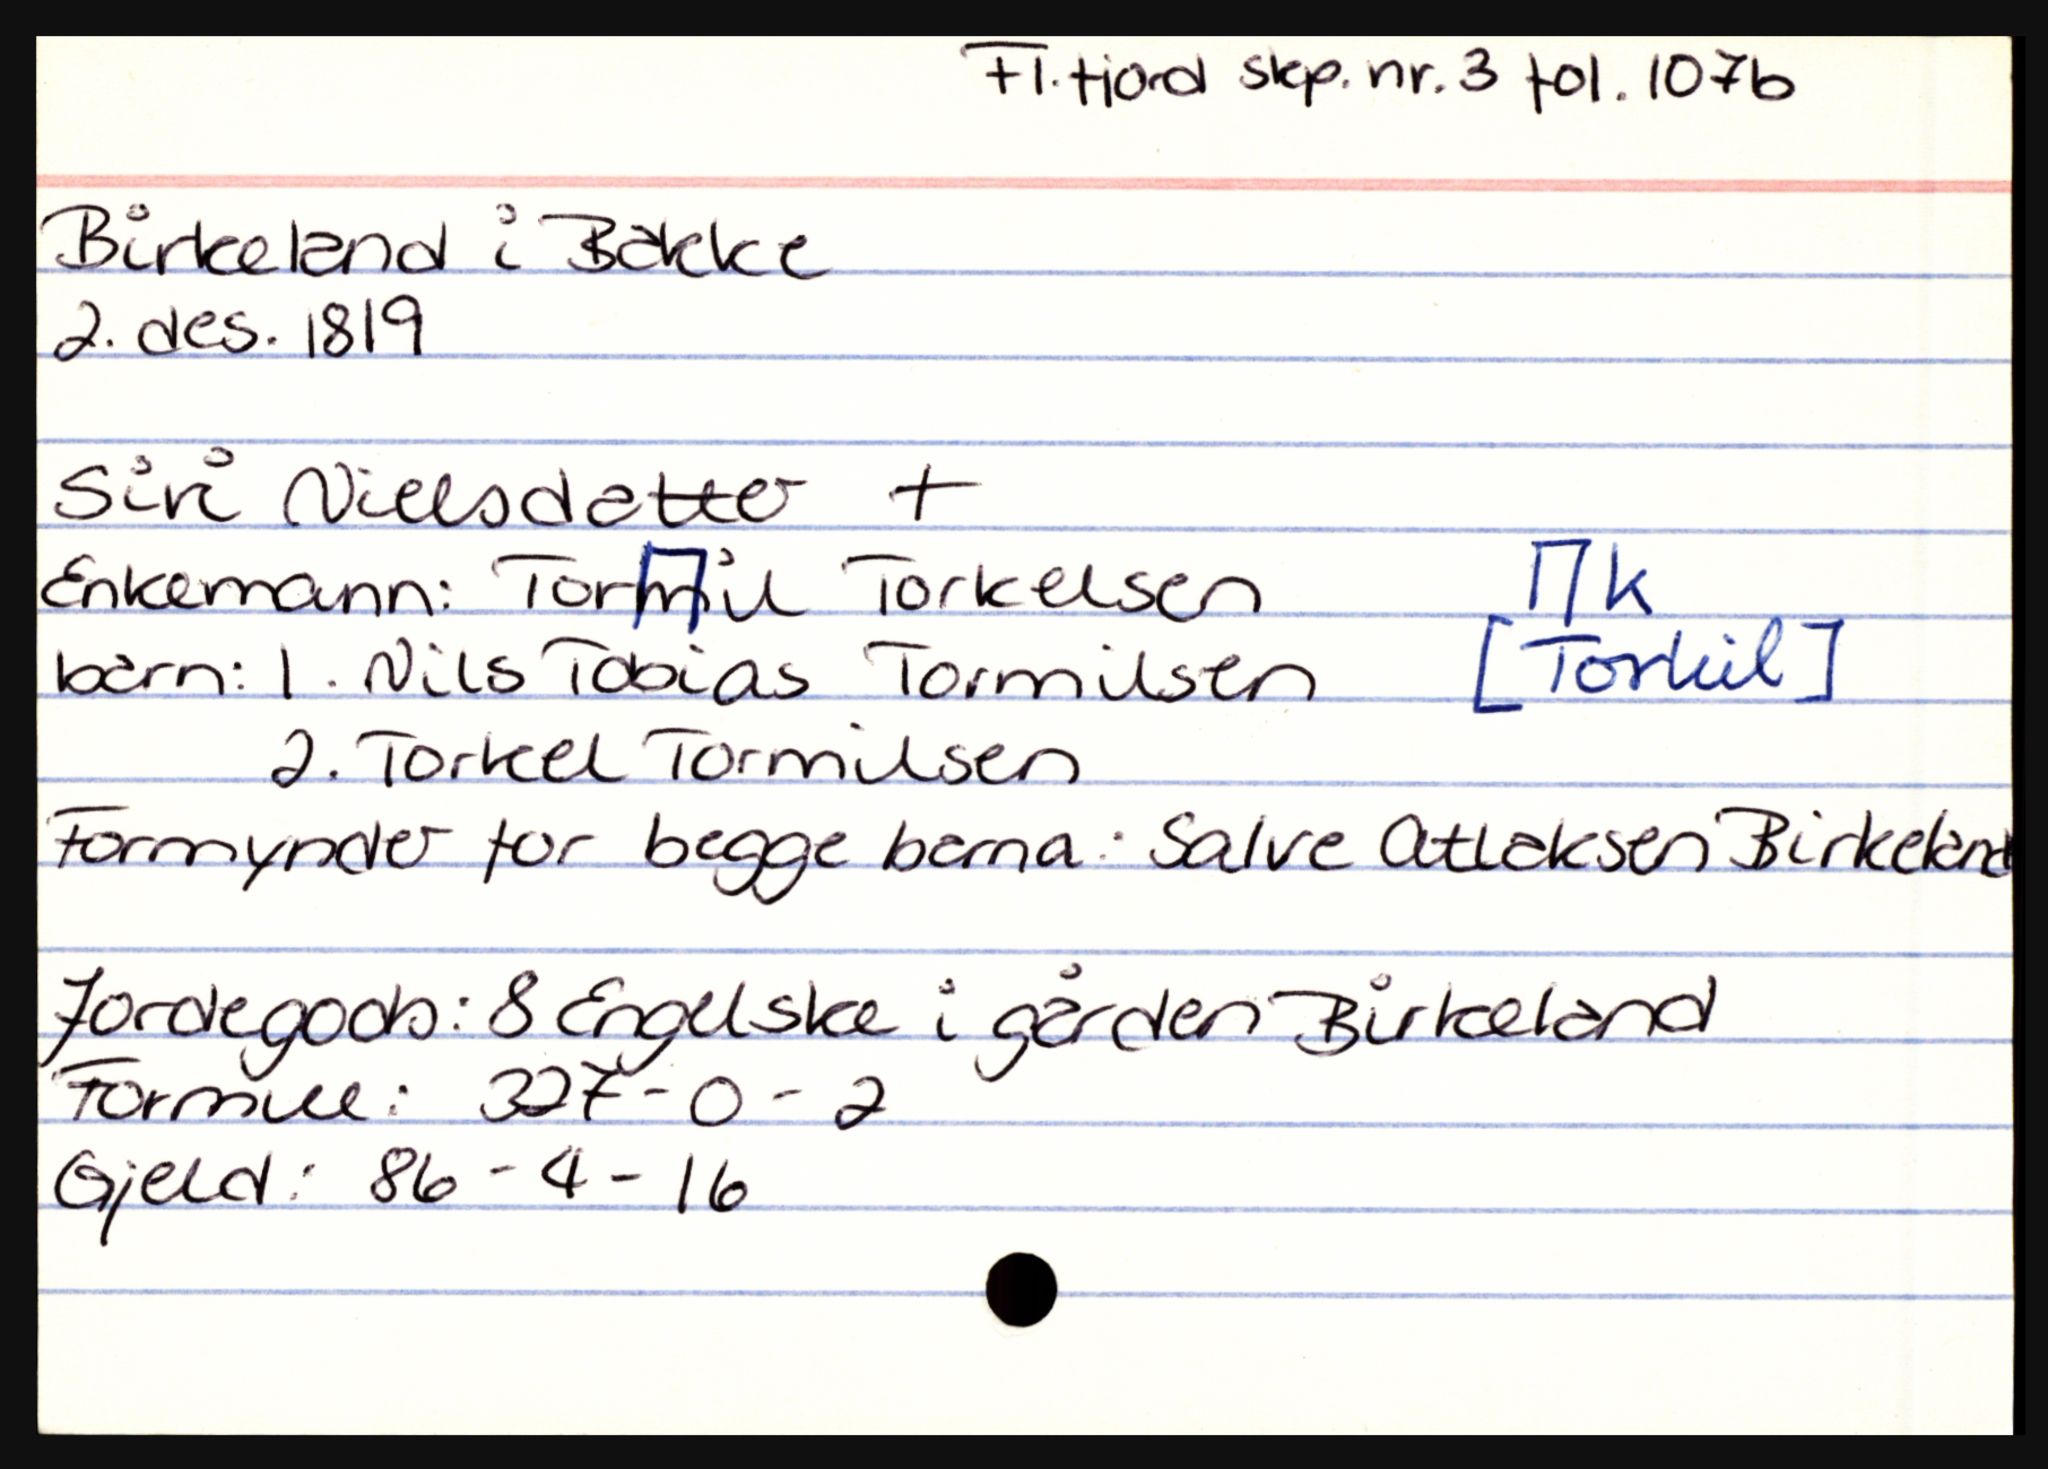 Fl.fjord skp. nr. 3 fol. 107b
Birkeland i Bakke
2. des. 1819
Siri Nielsdatter +
Enkemann: Tormil Torkelsen ⎡⎤ k
barn: 1. Nils Tobias Tormilsen [Torkil]
2. Torkel Tormilsen
Formynder for begge barna: Salve Atlaksen Birkeland
Jordegods: 8 Engelske i gården Birkeland
Formue: 327-0-2
Gjeld: 86-4-16